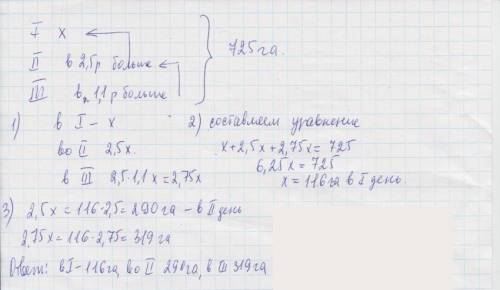 I x
II в 2,5р больше
III в 1,1р больше
725га.
1) в I – x
во II 2,5x.
в III 2,5·1,1x = 2,75x
2) составляем уравнение
x+2,5x+2,75x = 725
6,25x = 725
x = 116га в I день.
3) 2,5x = 116·2,5 = 290га – в II день
2,75x = 116·2,75 = 319га
Ответ: в I – 116га, во II 290га, в III 319га